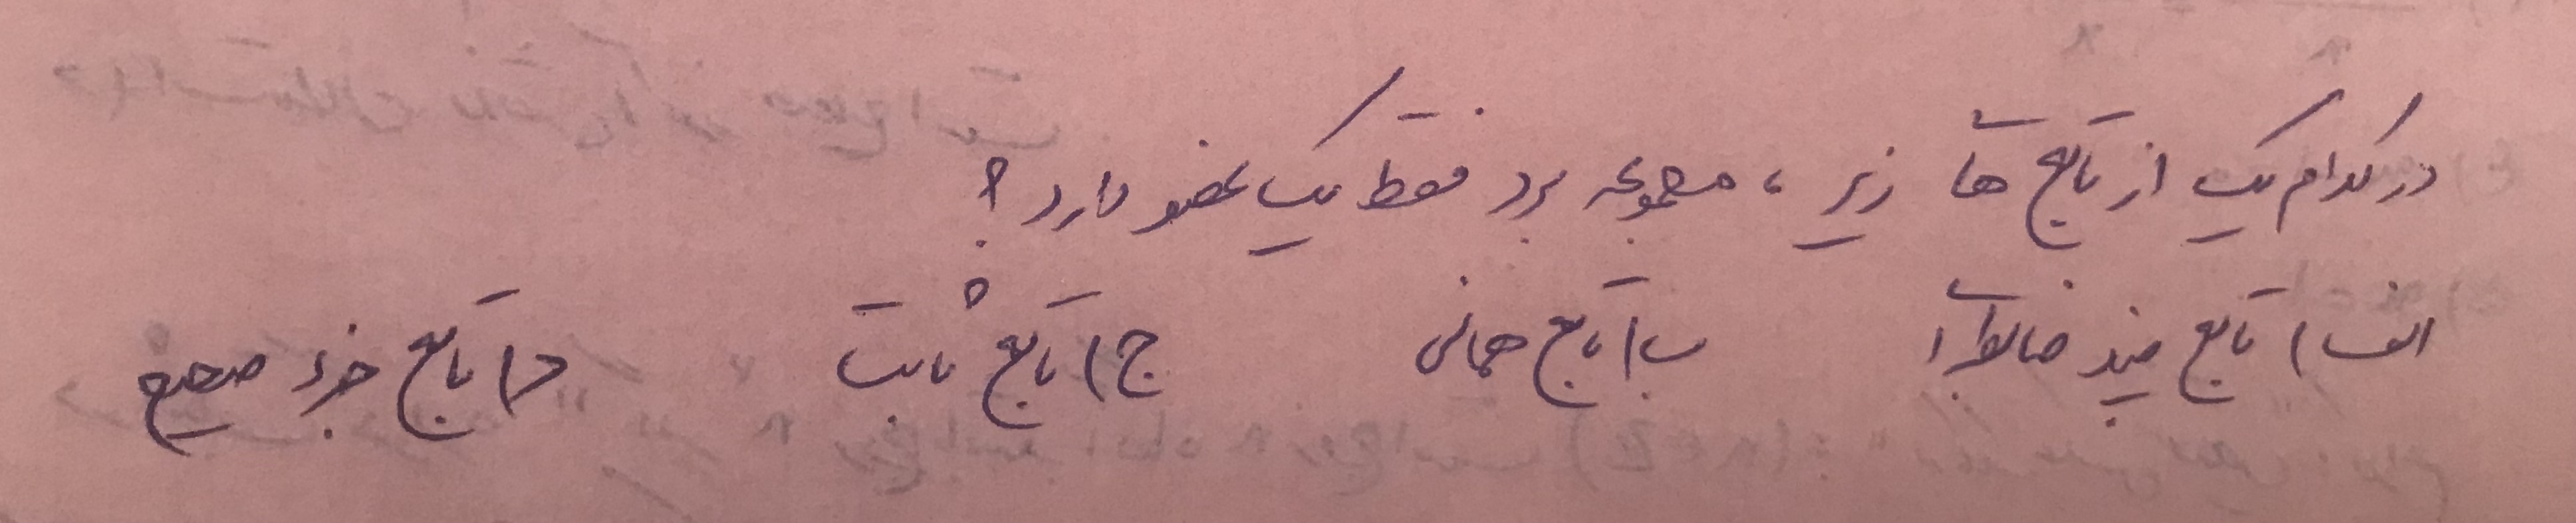 در کدام یک از تابع های زیر ، مجموعه برد فقط یک عضو دارد ؟
الف ) تابع چند ضابطه ای ب ) تابع همانی ج ) تابع ثابت د ) تابع جزء صحیح